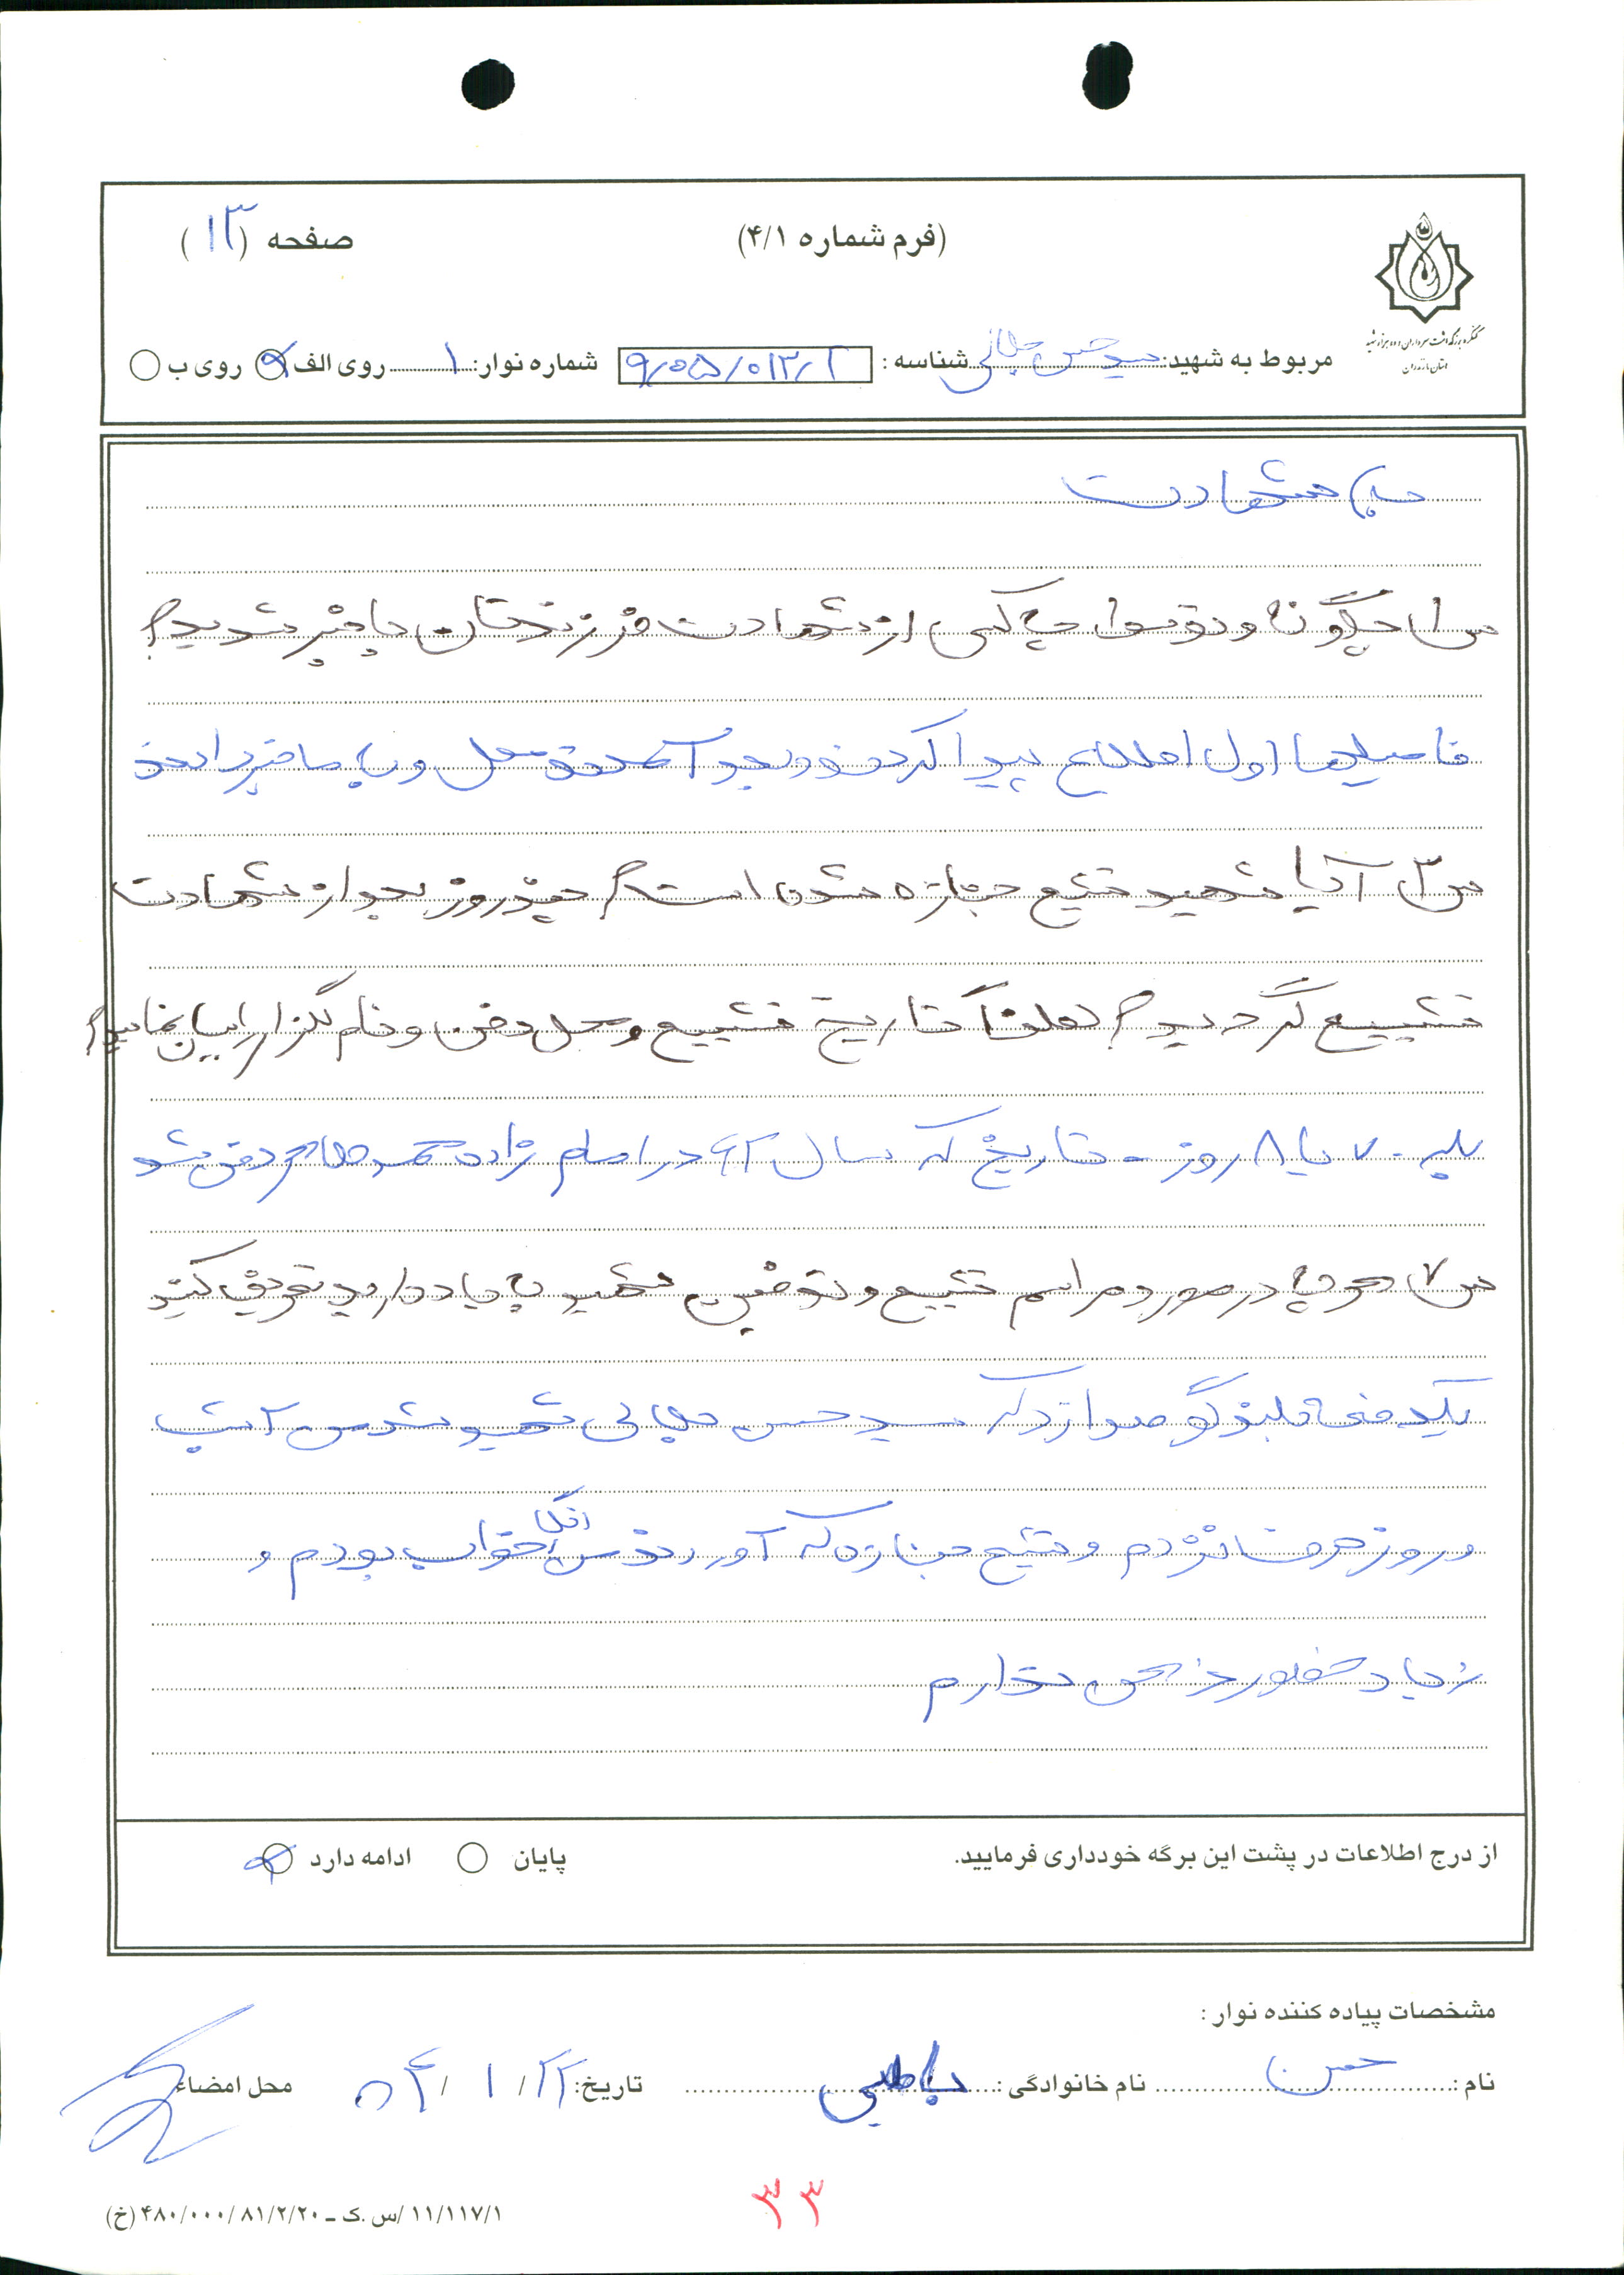 (فرم شماره ۴/۱)
صفحه (۱۳)
کنگره بزرگداشت سرداران و ده هزار شهید
استان مازندران
مربوط به شهید: سید حسن شناسه : ۹۰۵۵/۰۱۳/۲ شماره نوار: ۱ روی الف روی ب
شهادت
س۱ چگونه و توسط چه کسی از شهادت فرزندتان با خبر شدید؟
فامیلها اول اطلاع پیدا کردند و بعد آمدند محل و به ما خبر دادند
س۳ آیا شهید تشیع جنازه شده است؟ چند روز بعد از شهادت
تشییع گردید؟ لطفاً تاریخ تشییع و محل دفن و نام گلزار را بیان نمایید؟
بله ۷ یا ۸ روز - تاریخ که سال ۶۲ در امام زاده محمد طاهر دفن شد
س۷ هر چه در مورد مراسم تشییع و تدفین شهید به یاد دارید تعریف کنید
یکدفعه بلندگو صدا زد که سید حسن شهید شد من ۲ شب
و روز حرف نزدم و تشیع جنازه که آوردند من انگار خواب بودم و
زیاد حضور ذهن ندارم
از درج اطلاعات در پشت این برگه خودداری فرمایید.
پایان ادامه دارد
مشخصات پیاده کننده نوار :
نام : حسن نام خانوادگی : تاریخ: ۲۲/ ۱ / ۸۴ محل امضاء
۳۳
۱۱/۱۱۷/۱ /س.ک ـ ۴۸۰/۰۰۰/۸۱/۲/۲۰ (خ)